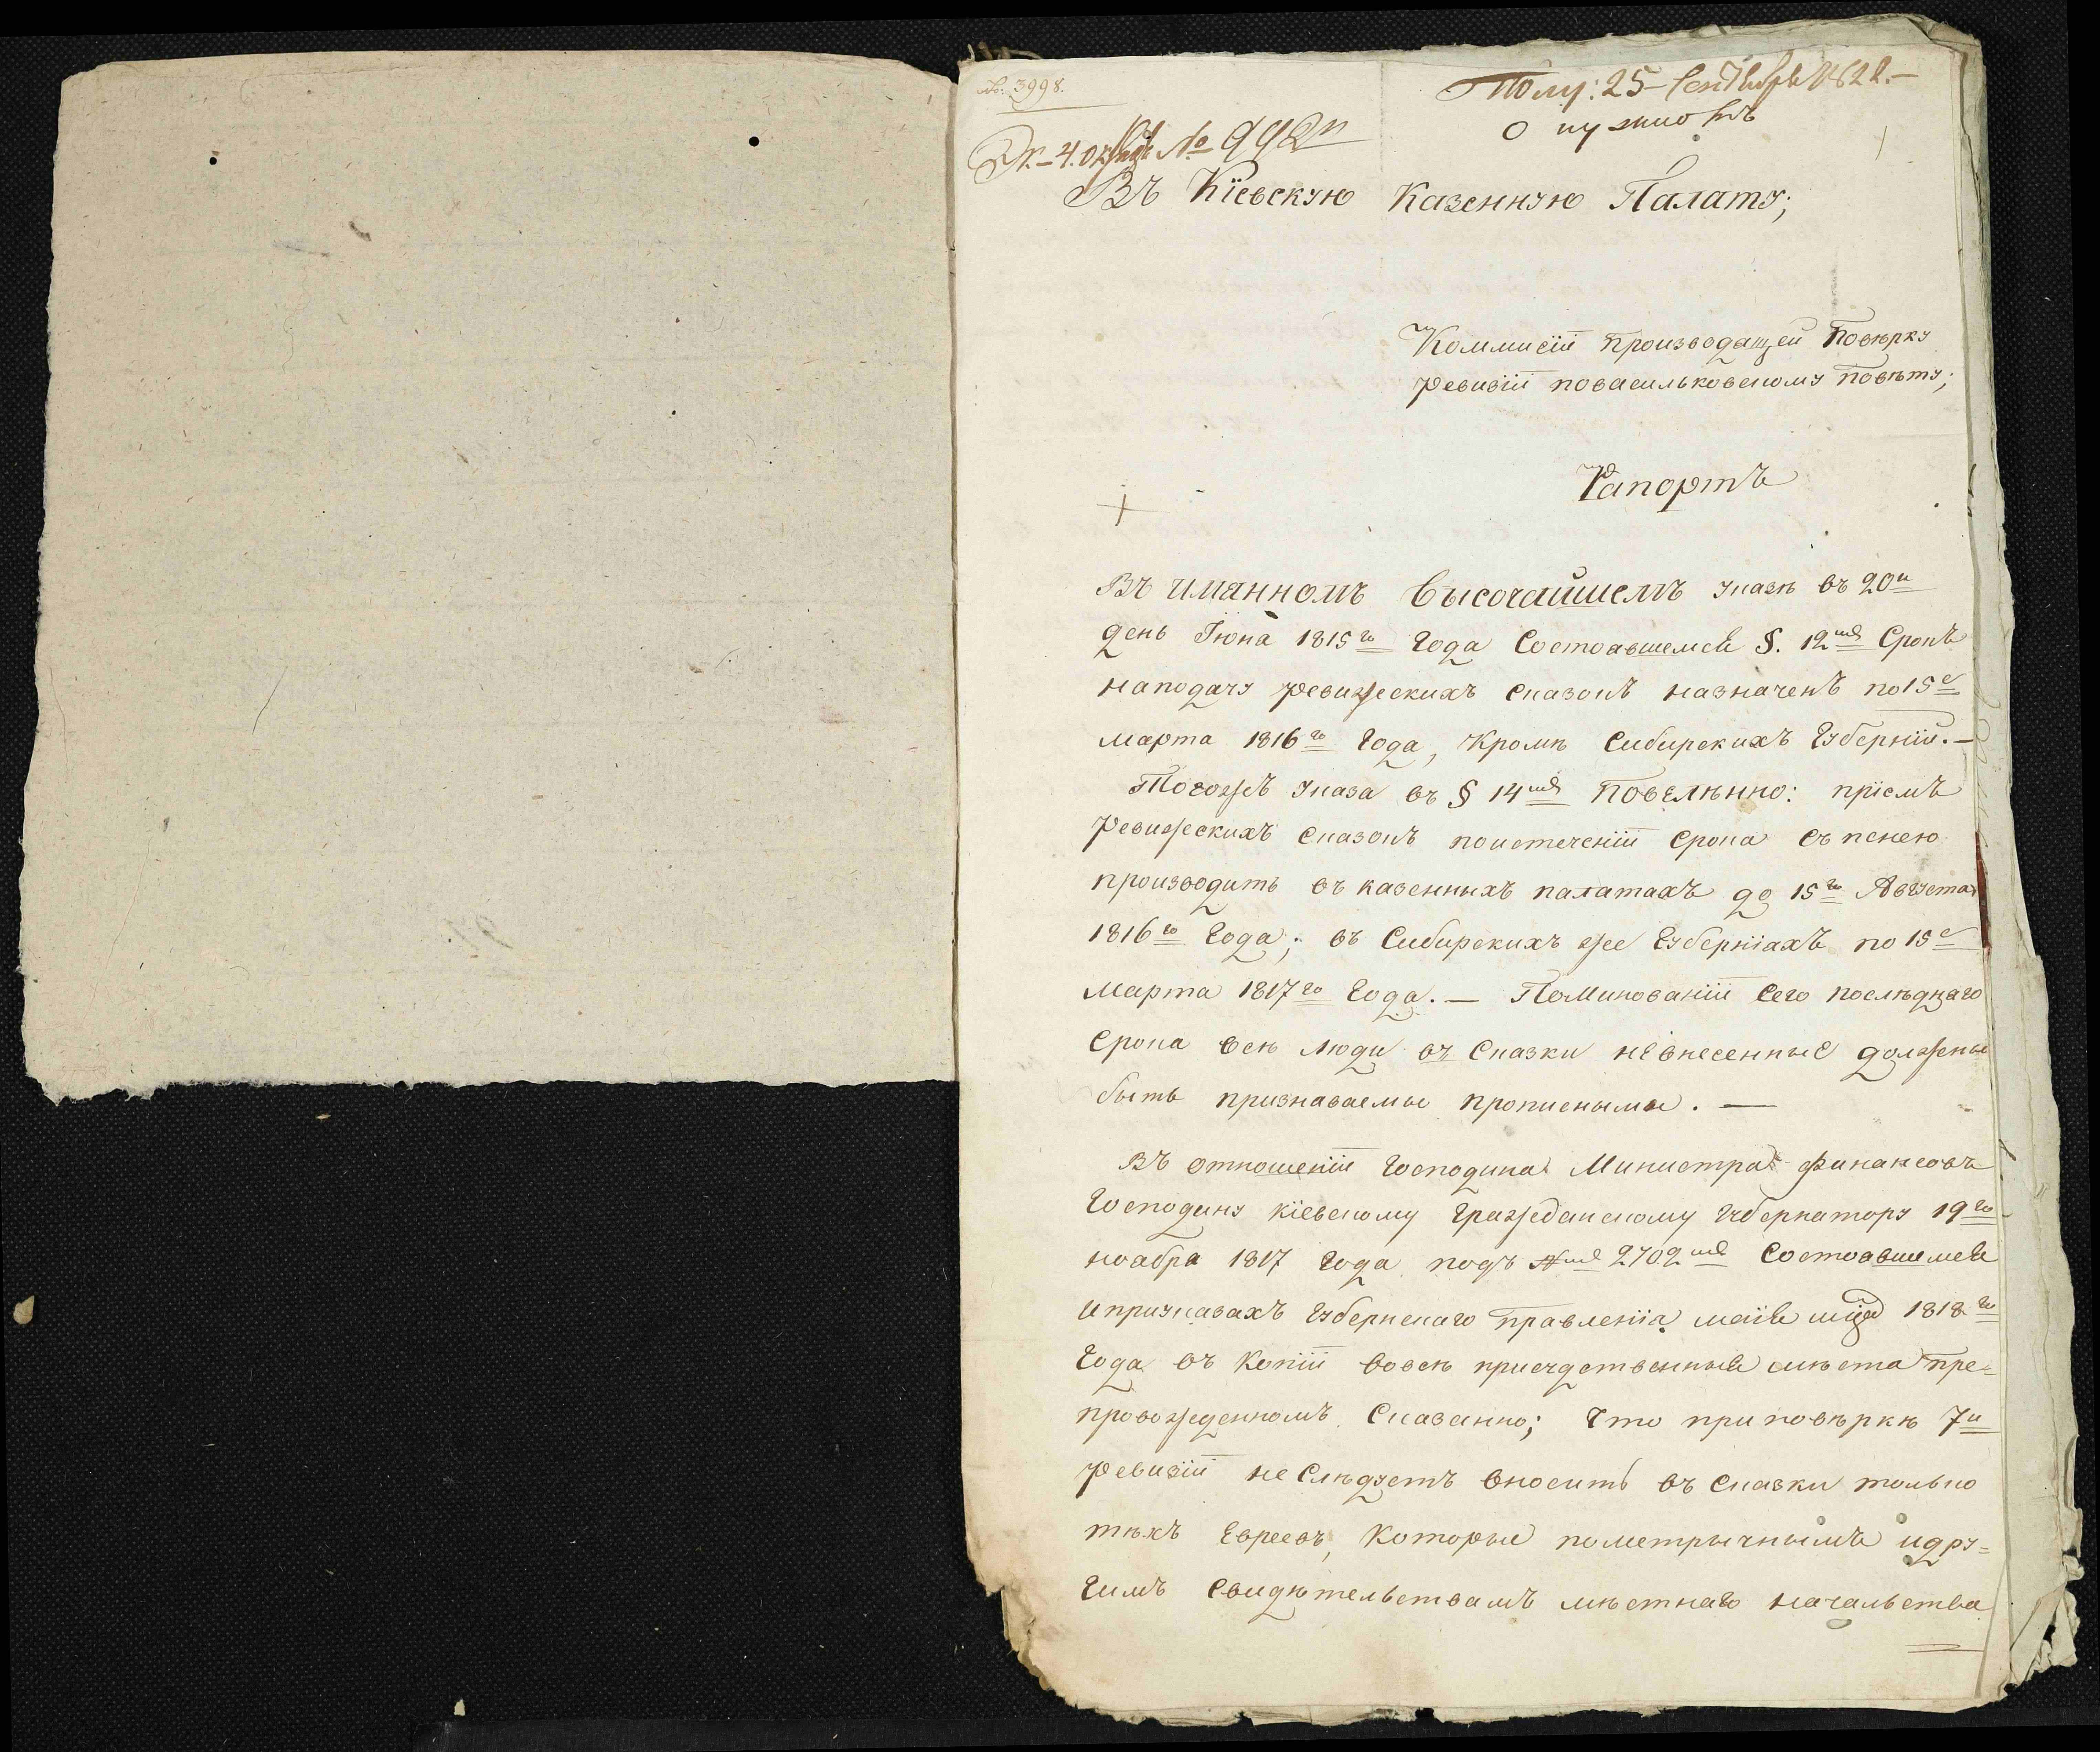 № 3998.
Полу: 25 Сентября 1822.—
О нужно
№ 992
Въ Кіевскую Казенную Палату;
Коммисіи производящей Повѣрку
ревизіи повасильковскому повѣту;
Рапортъ
Въ имянномъ Высочайшемъ указѣ въ 20й
день Іюня 1815го Года Состоявшемся §. 12мъ Срокъ
наподачу ревижескихъ сказокъ назначенъ по 15е
марта 1816го Года, Кромѣ Сибирскихъ Губерній.—
Тогожъ указа въ § 14мъ Повелѣнно: пріемъ
ревижескихъ сказокъ поистеченіи срока съ пенею
производить въ казенныхъ палатахъ до 15го Августа
1816го Года; въ Сибирскихъ же Губерніахъ по 15е
марта 1817го Года.— Поминованіи Сего послѣдняго
срока всѣ люди въ Сказки невнесенные должны
быть признаваемы прописными.—
Въ отношеніи Господина Министра Финансовъ
Господину кіевскому Гражданскому Губернатору 19го
ноабря 1817 Года подъ №мъ 2702мъ Состоявшемся
иприуказахъ Губернскаго правленія маія мца 1818го
Года въ Копіи вовсѣ присудственныя мѣста пре=
провожденномъ Сказанно; Что приповѣркѣ 7й
ревизіи не Слѣдуетъ вносить въ сказки только
тѣхъ Евреевъ, Которые пометрычнымъ идру=
гимъ Свидѣтельствамъ мѣстнаго начальства